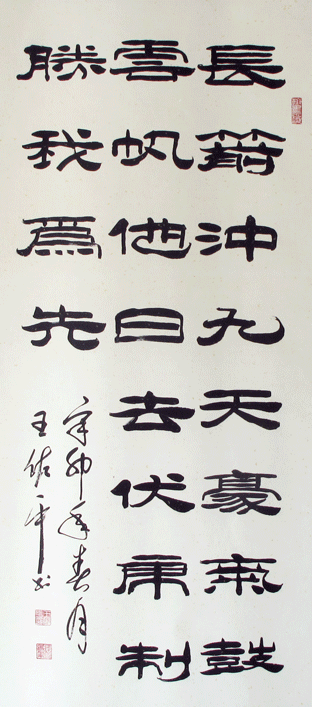 長箭沖九天豪氣鼓
雲帆他日去伏虎制
勝我爲先
辛卯年春月
王佑平书